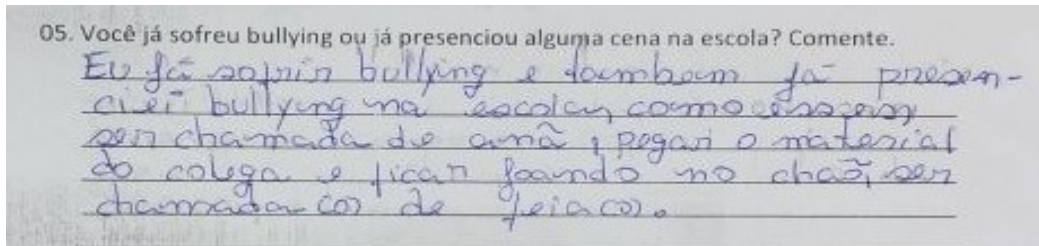 05. Você já sofreu bullying ou já presenciou alguma cena na escola? Comente.
Eu já sofrir bullying e tambem já presen-
ciei bullying na escola, como
ser chamada de anã, pegar o material
do colega e ficar joando no chaõ, ser
chamada (o) de feia (o).